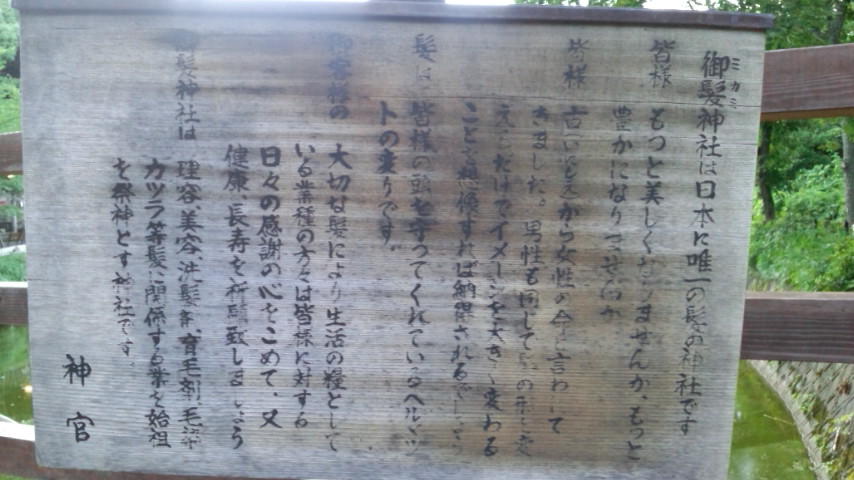 ミカミ
御髪神社は日本に唯一の髪の神社です
皆様 もっと美しくなりませんか、もっと
豊かになりませんか
皆様 古いにしえから女性の命と言わして
きました。男性も同じて 髪の形を変
えるだけでイメージを大きく変わる
ことを想像すれば納得されるでしょう
髪は 皆様の頭を守ってくれているヘルメッ
トの変りです。
御客様の 大切な髪により生活の糧として
いる業種の方々は皆様に対する
日々の感謝の心をこめて、又
健康、長寿を祈願致しましょう
御髪神社は 理容、美容、洗髪剤、育毛剤、毛染
カツラ等髪に関係する業を始祖
を祭神とす神社です。
神官